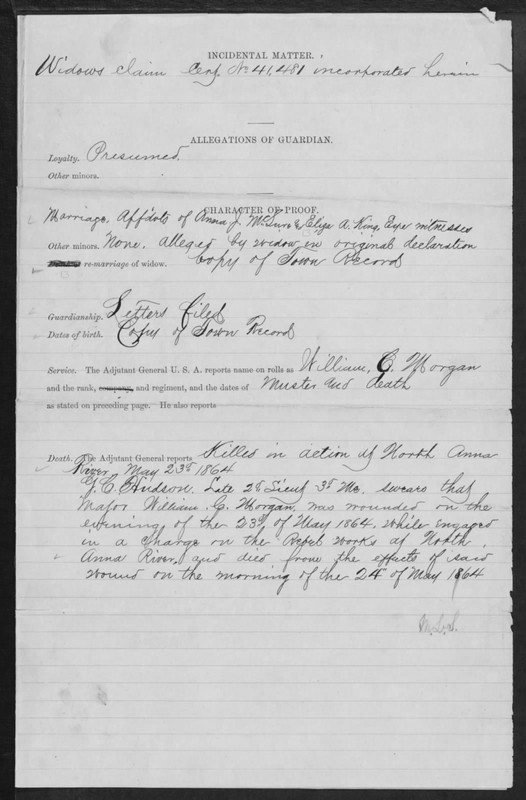 INCIDENTAL MATTER.
Widows claim Cerf No 41,481 incorporated herein
ALLEGATIONS OF GUARDIAN.
Loyalty. Presumed.
Other minors.
CHARACTER OF PROOF.
Marriage. Affdots of Anna J. & Eliza A. King, Eye witnesses
Other minors. None. alleged by widow in original declaration
re-marriage of widow. Copy of Town Record
Guardianship. Letters Filed
Dates of birth. Copy of Town Record
Service. The Adjutant General U. S. A. reports name on rolls as William, C. Morgan
and the rank, company, and regiment, and the dates of Muster and death
as stated on preceding page. He also reports
Death. The Adjutant General reports Killed in action at North Anna
River, May 23d 1864
G. C. Hudson. Late 2d Lieut 3d Me. swears that
Major William. C. Morgan, was wounded on the
evening of the 23d of May 1864, while engaged
in a Charge on the Rebel works at North
Anna River, and died from the effects of said
wound on the morning of the 24 of May 1864